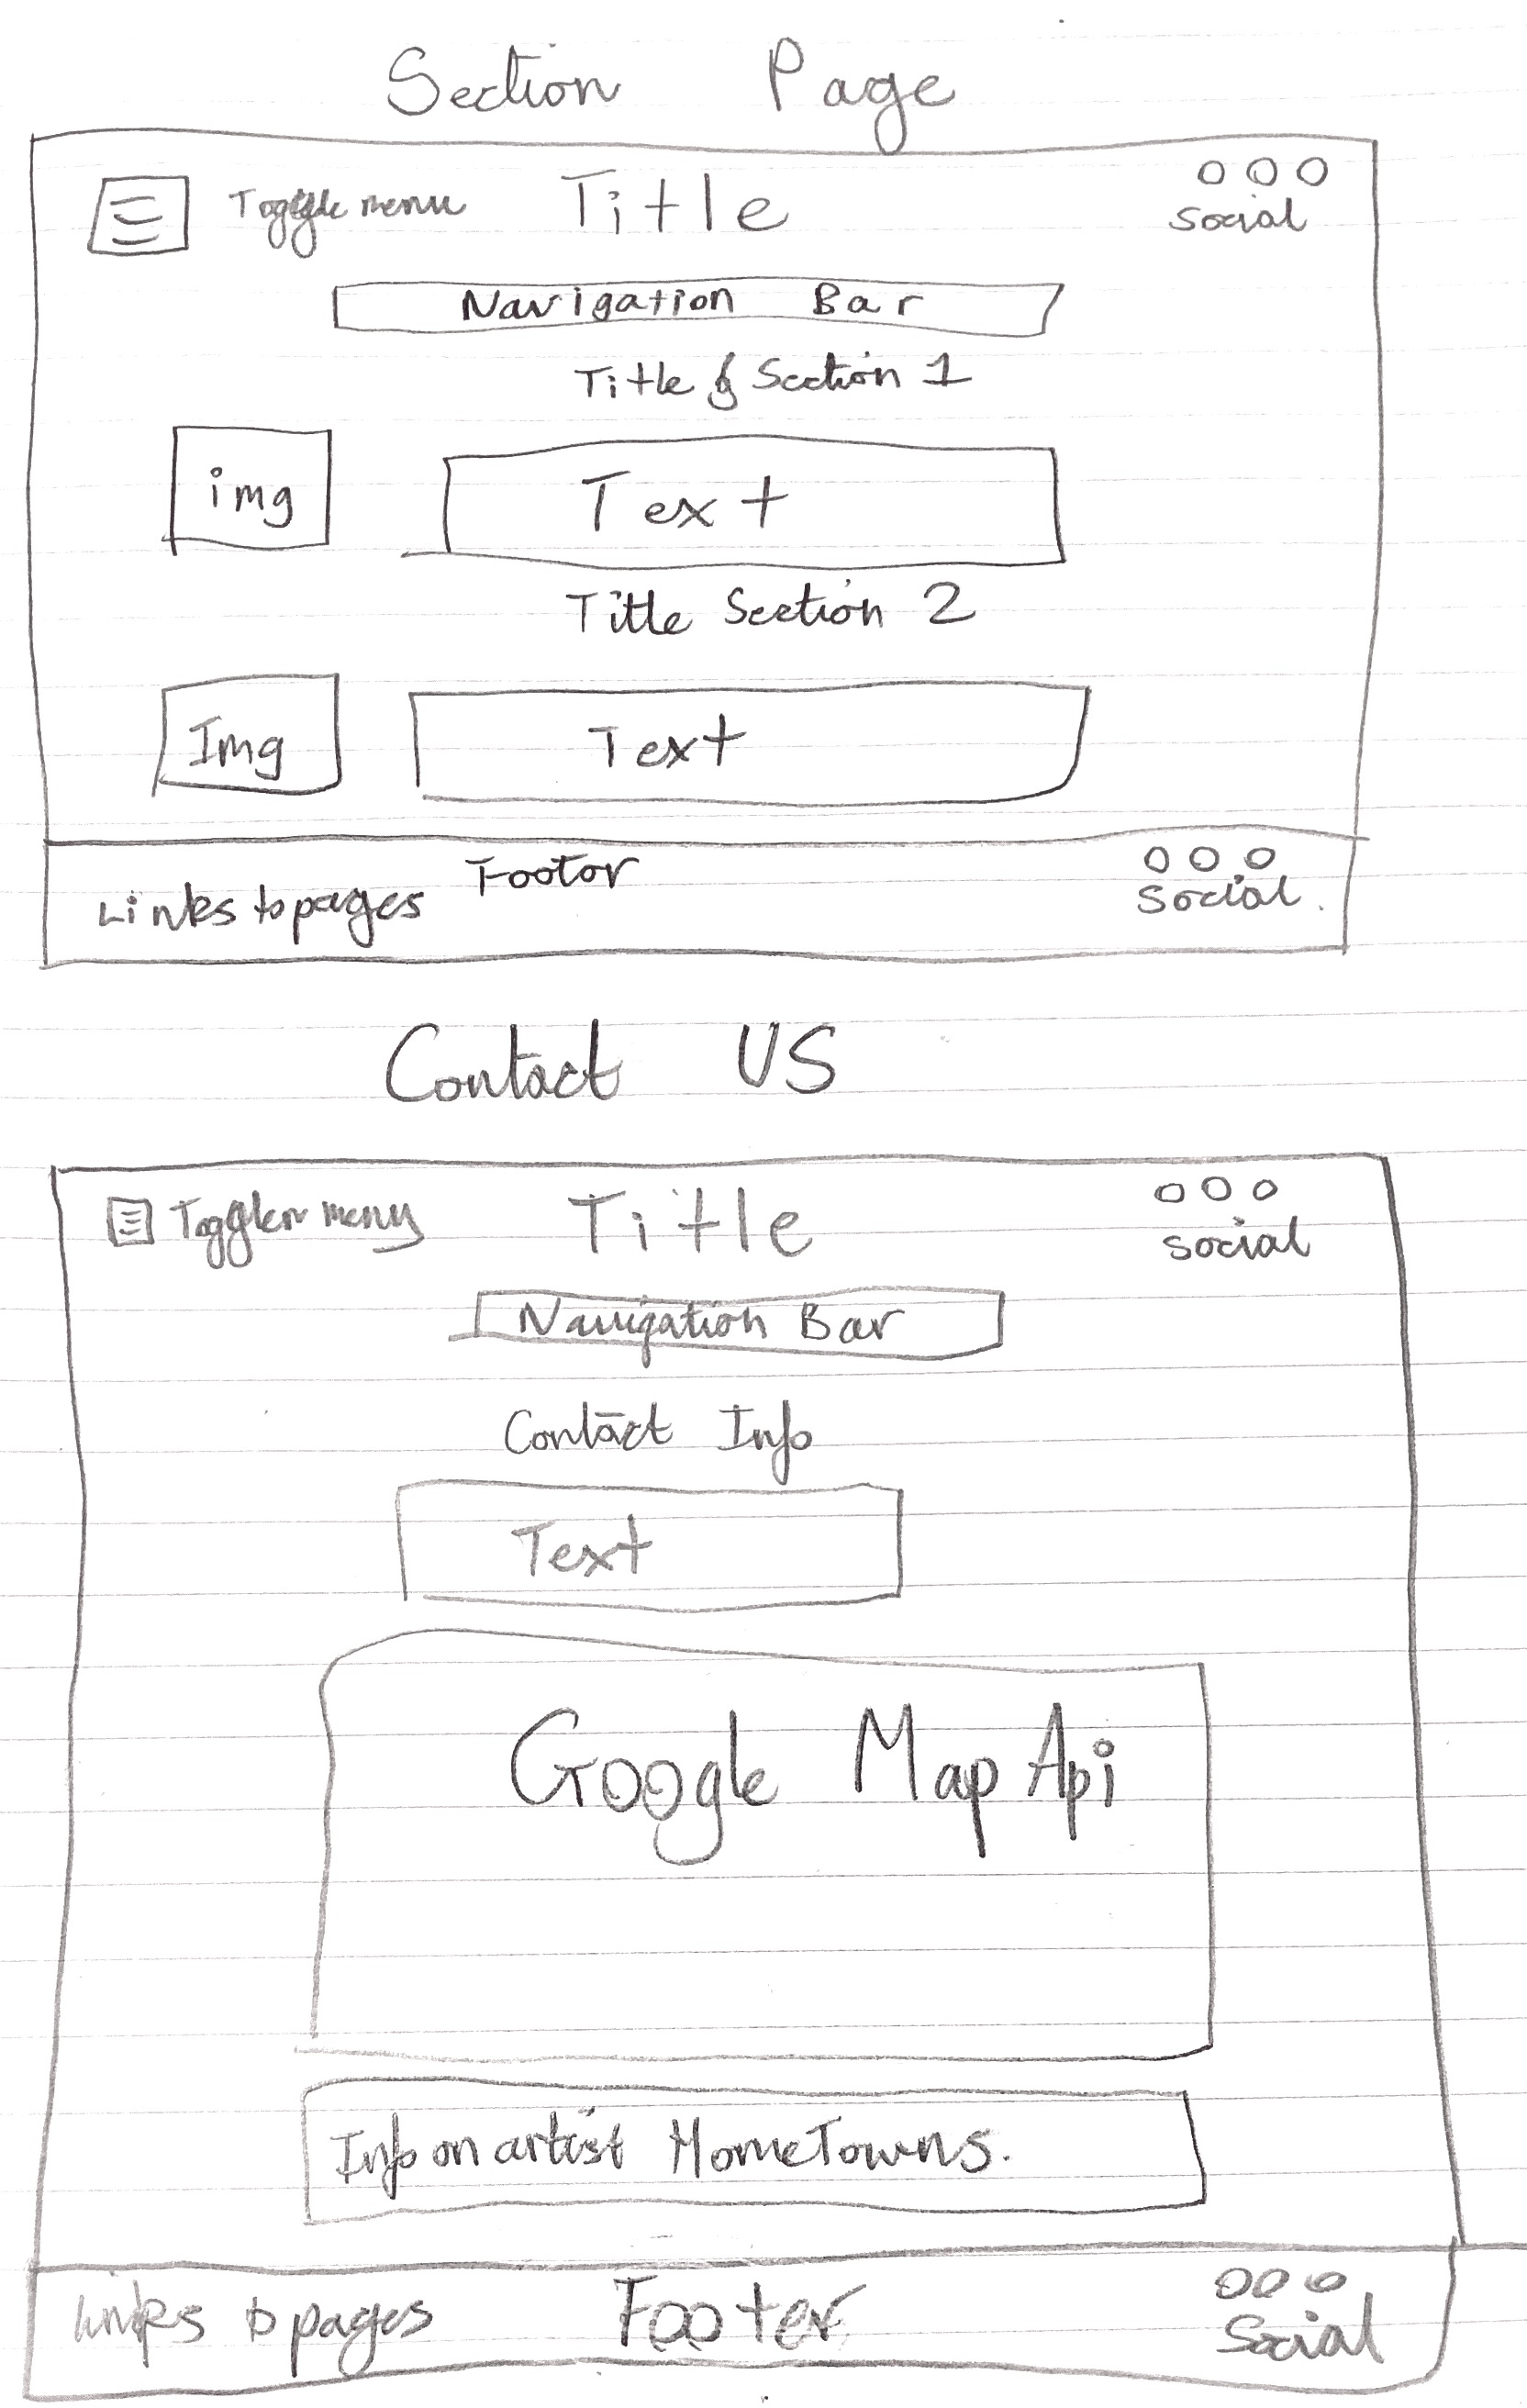 Section Page
Toggle menu Title
Social
Navigation Bar
Title of Section 1
img Text
Title Section 2
Img Text
Links to pages Footor
Social.
Contact US
Toggler menu Title
Social
Navigation Bar
Contact Info
Text
Google Map Api
Info on artist HomeTowns.
Links to pages Footer
Social